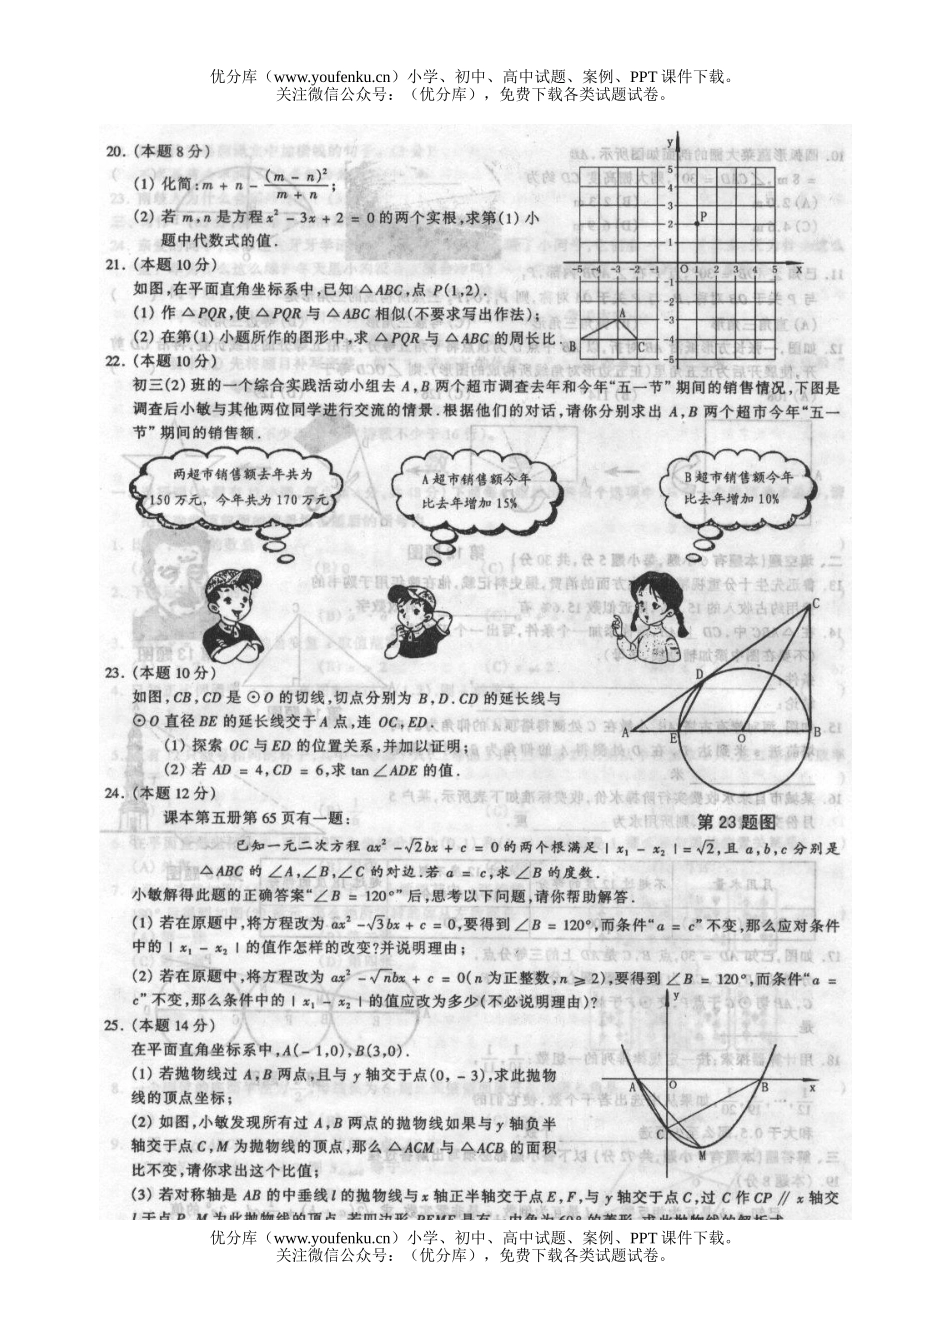 优分库（www.youfenku.cn）小学、初中、高中试题、案例、PPT 课件下载。
关注微信公众号：（优分库），免费下载各类试题试卷。
20. (本题 8 分)
(1) 化简: m + n - (m - n)² / (m + n);
(2) 若 m,n 是方程 x² - 3x + 2 = 0 的两个实根,求第(1) 小
题中代数式的值.
21. (本题 10 分)
如图,在平面直角坐标系中,已知 △ABC,点 P(1,2).
(1) 作 △PQR,使 △PQR 与 △ABC 相似(不要求写出作法);
(2) 在第(1) 小题所作的图形中,求 △PQR 与 △ABC 的周长比.
y
5
4
3
2
1
P
-5 -4 -3 -2 -1 O 1 2 3 4 5
-3
-4
-5
A
B C
22. (本题 10 分)
初三(2) 班的一个综合实践活动小组去 A,B 两个超市调查去年和今年“五一节” 期间的销售情况,下图是
调查后小敏与其他两位同学进行交流的情景.根据他们的对话,请你分别求出 A,B 两个超市今年“五一
节” 期间的销售额.
两超市销售额去年共为
150 万元，今年共为 170 万元
A 超市销售额今年
比去年增加 15%
B 超市销售额今年
比去年增加 10%
23. (本题 10 分)
如图,CB,CD 是 ⊙O 的切线,切点分别为 B,D. CD 的延长线与
⊙O 直径 BE 的延长线交于 A 点,连 OC,ED.
(1) 探索 OC 与 ED 的位置关系,并加以证明;
(2) 若 AD = 4,CD = 6,求 tan ∠ADE 的值.
C
D
A E O B
第 23 题图
24. (本题 12 分)
课本第五册第 65 页有一题:
已知一元二次方程 ax² - √2bx + c = 0 的两个根满足 | x₁ - x₂ | = √2,且 a,b,c 分别是
△ABC 的 ∠A,∠B,∠C 的对边.若 a = c,求 ∠B 的度数.
小敏解得此题的正确答案“∠B = 120°” 后,思考以下问题,请你帮助解答.
(1) 若在原题中,将方程改为 ax² - √3bx + c = 0,要得到 ∠B = 120°,而条件“a = c” 不变,那么应对条件
中的 | x₁ - x₂ | 的值作怎样的改变?并说明理由;
(2) 若在原题中,将方程改为 ax² - √nbx + c = 0(n 为正整数,n ≥ 2),要得到 ∠B = 120°,而条件“a =
c” 不变,那么条件中的 | x₁ - x₂ | 的值应改为多少(不必说明理由)?
25. (本题 14 分)
在平面直角坐标系中,A(- 1,0),B(3,0).
(1) 若抛物线过 A,B 两点,且与 y 轴交于点(0, - 3),求此抛物
线的顶点坐标;
(2) 如图,小敏发现所有过 A,B 两点的抛物线如果与 y 轴负半
轴交于点 C,M 为抛物线的顶点,那么 △ACM 与 △ACB 的面积
比不变,请你求出这个比值;
y
A O B x
C
M
(3) 若对称轴是 AB 的中垂线 l 的抛物线与 x 轴正半轴交于点 E,F,与 y 轴交于点 C,过 C 作 CP ∥ x 轴交
优分库（www.youfenku.cn）小学、初中、高中试题、案例、PPT 课件下载。
关注微信公众号：（优分库），免费下载各类试题试卷。